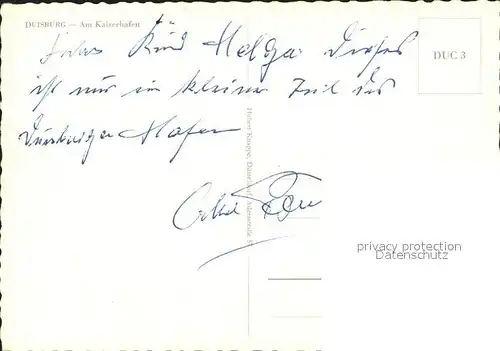 DUISBURG — Am Kaiserhafen
Liebes Kind Helga. Dieses
DUC 3
ist nur ein kleiner Teil des
Duisburger Hafen
Onkel
Hubert Knappe, Düsseldorf
privacy protection
Datenschutz